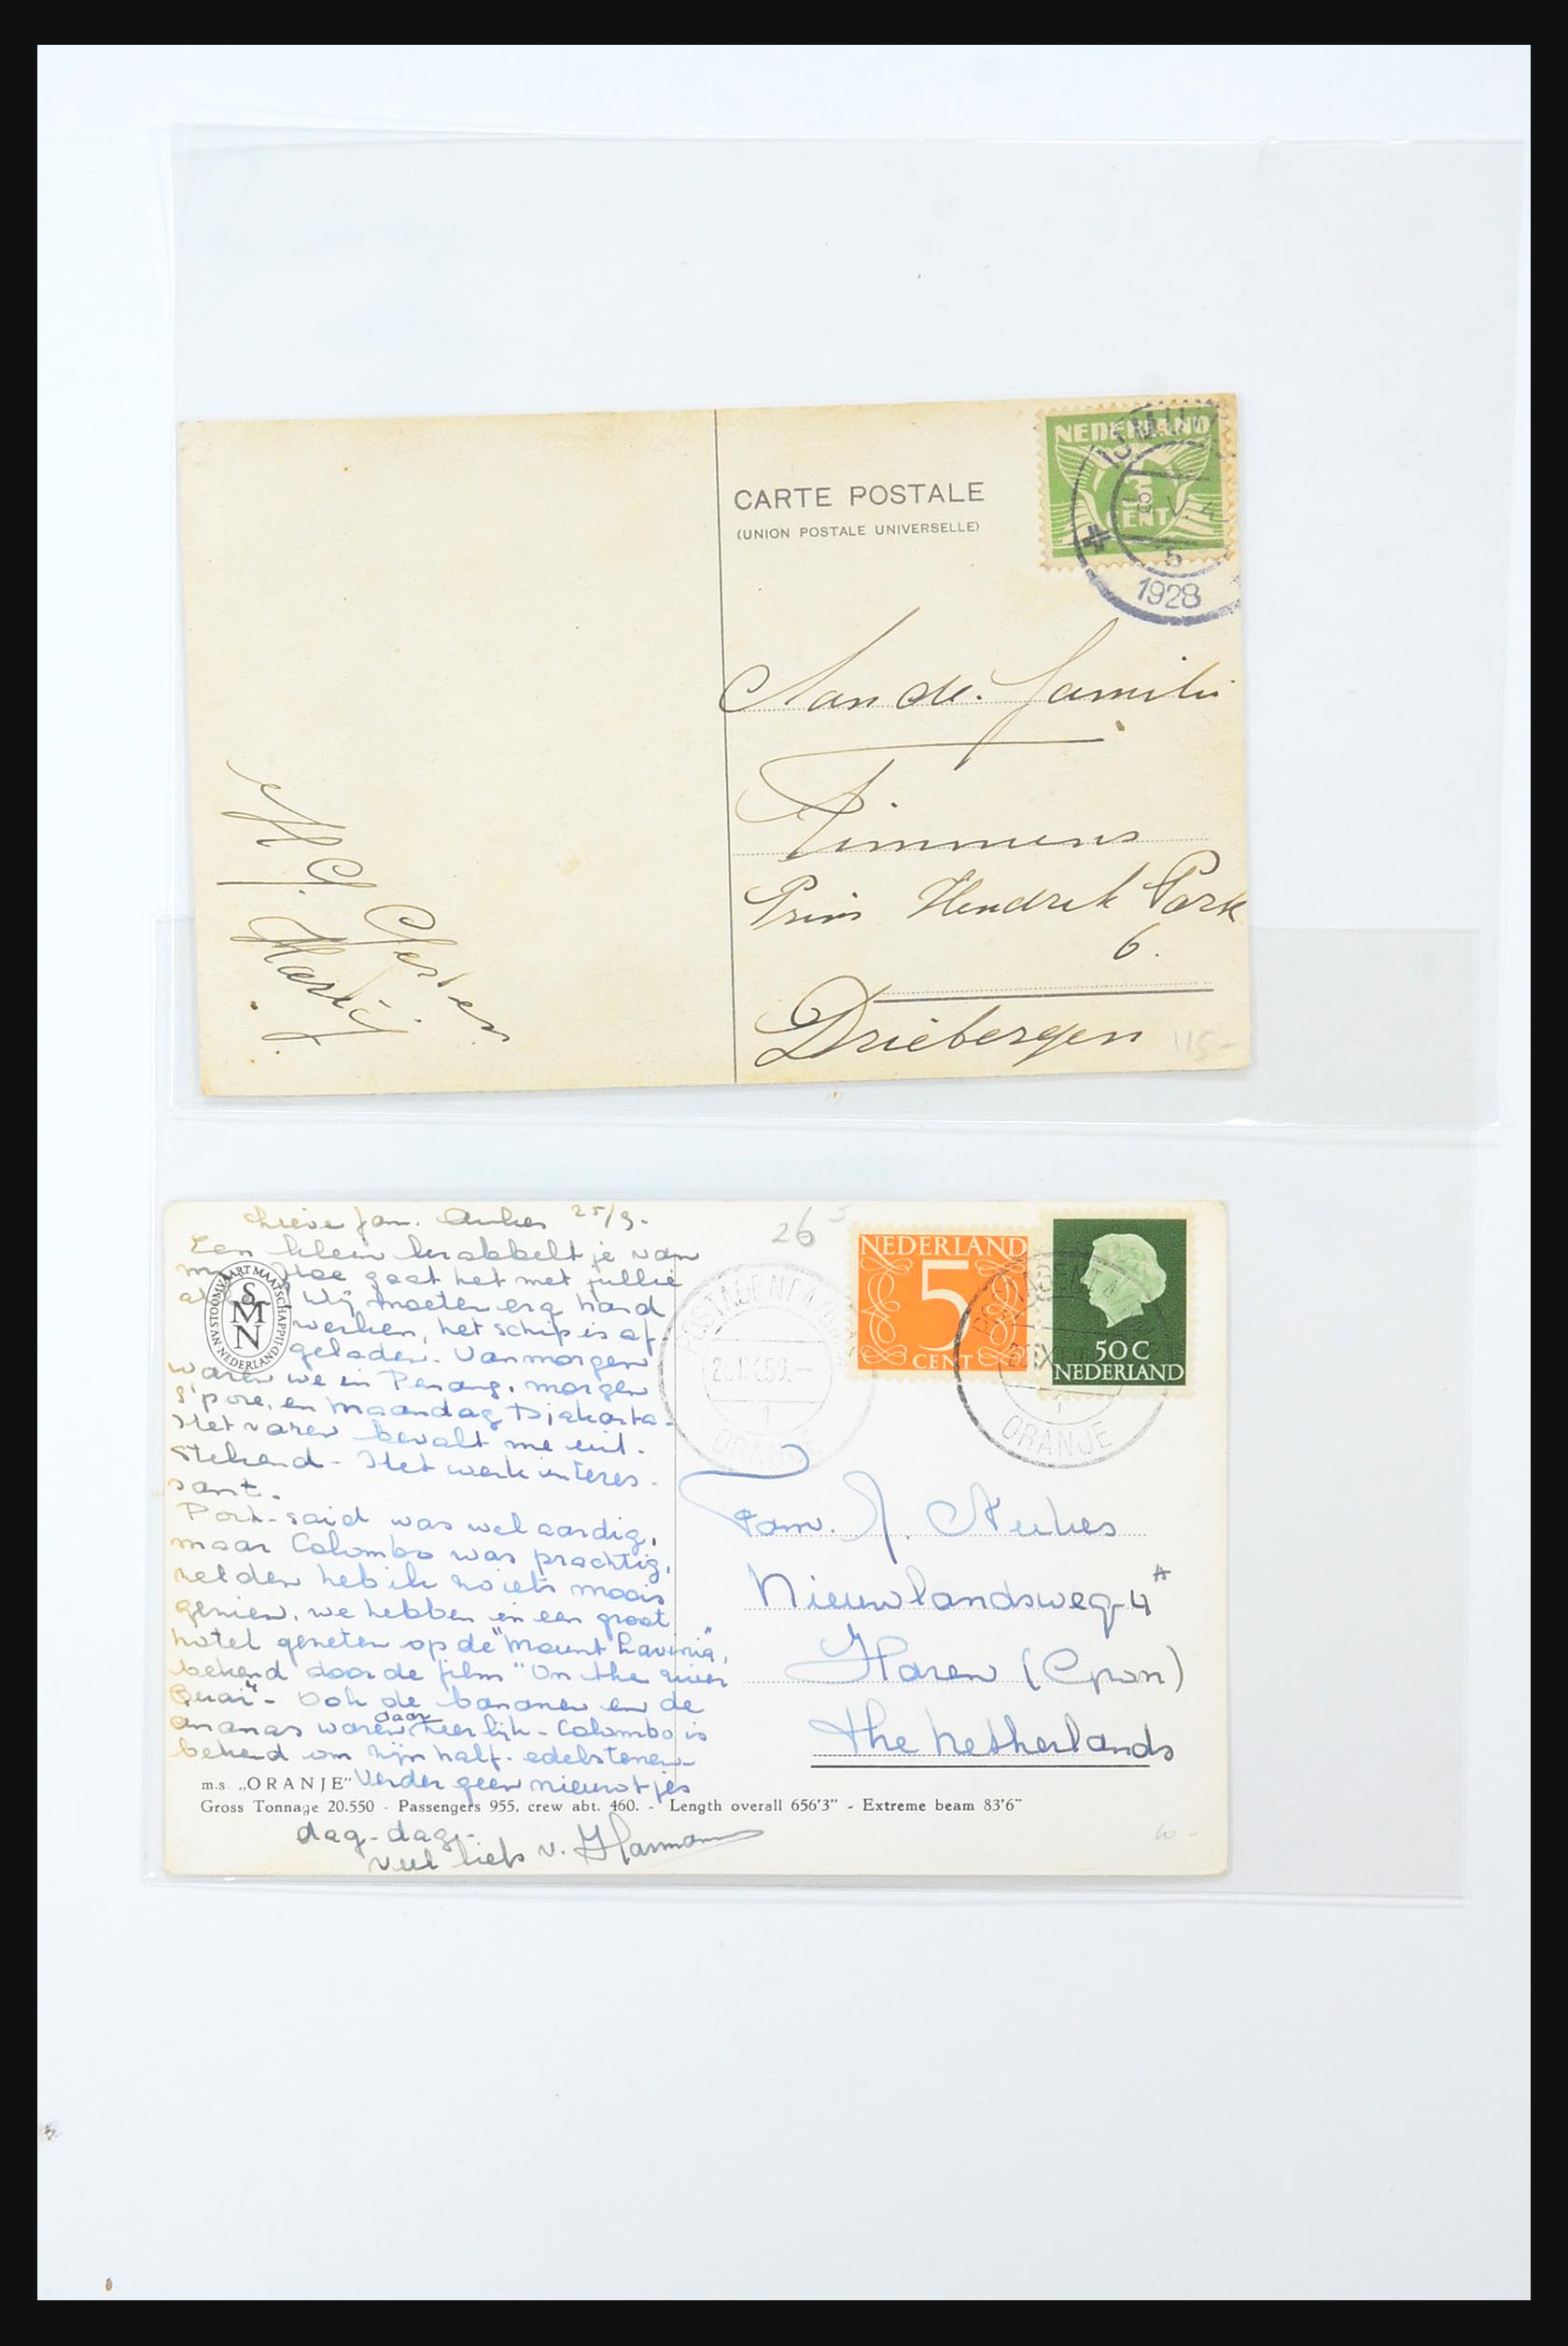 NEDERLAND
3
CENT
IJMUI
V. 4
5
1928
CARTE POSTALE
(UNION POSTALE UNIVERSELLE)
Aan de. familie
Timmens
Prins Hendrik Park
6.
Driebergen
115-
H G
Harig
26
NEDERLAND
5
CENT
50 C
NEDERLAND
POSTAGENT A/BOORD
.IX.59.-
1
ORANJE
ORANJE
Lieve fam. 25/9-
Een klein krabbeltje van
Hoe gaat het met jullie
Wij moeten erg hard
werken, het schip is af
geladen. Vanmorgen
waren we in Penang, morgen
S'pore, en maandag Djakarta-
Het varen bevalt me uit.
stekend - Het werk interes-
sant.
Port-said was wel aardig,
maar Colombo was prachtig,
zelden heb ik zo iets moois
gezien, we hebben in een groot
hotel gezeten op de "Mount Lavinia",
bekend door de film "On the river
Quai" - Ook de bananen en de
ananas waren daar heerlijk - Colombo is
bekend om zijn half-edelstenen-
Verder geen nieuwtjes
dag-dag-
veel liefs v. Harmann
STOOMVAART MAATSCHAPPIJ NEDERLAND
SMN
Fam. J.
Nieuwlandsweg 4 A
Haren (Gron)
the Netherlands
m.s „ORANJE"
Gross Tonnage 20.550 - Passengers 955, crew abt. 460. - Length overall 656'3" - Extreme beam 83'6"